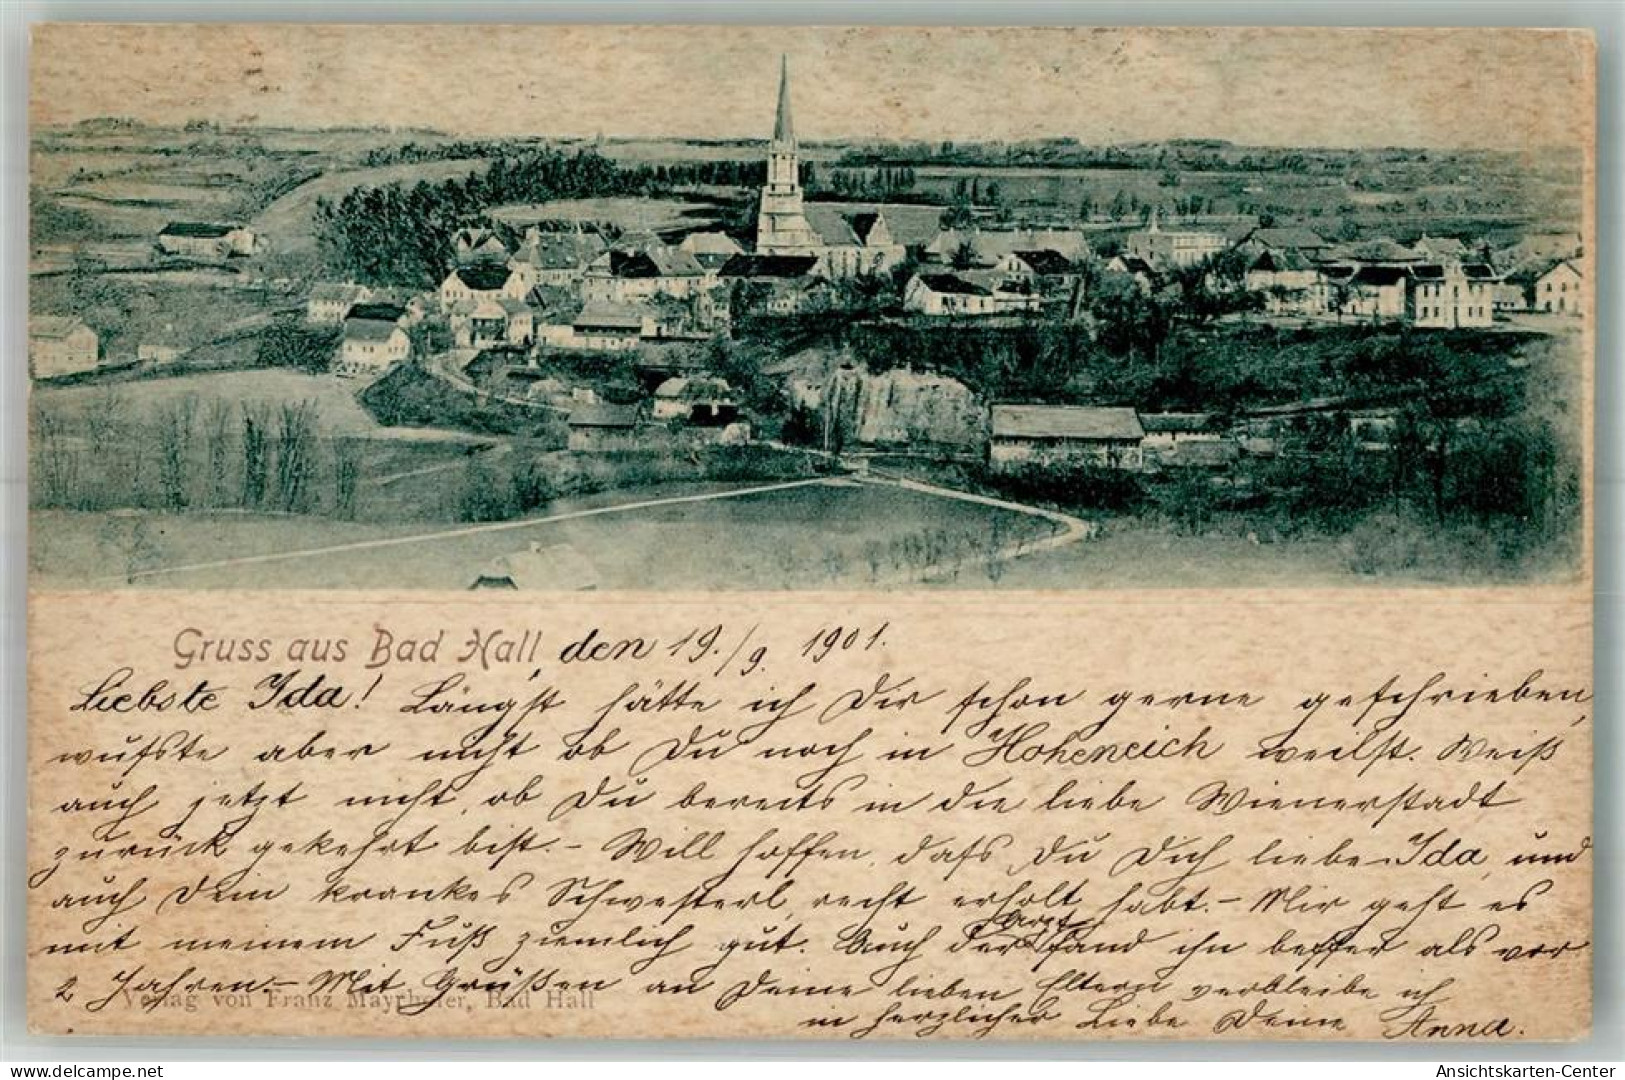 Gruss aus Bad Hall, den 19./9. 1901.
Liebste Ida! Längst hätte ich Dir schon gerne geschrieben,
wußte aber nicht ob Du noch in Hoheneich weilst. Weiß
auch jetzt nicht, ob Du bereits in die liebe Wienerstadt
zurück gekehrt bist. - Will hoffen, dass Du Dich liebe Ida, und
auch Dein krankes Schwesterl, recht erholt habt. - Mir geht es
mit meinem Fuß ziemlich gut. Auch der Arzt fand ihn besser als vor
2 Jahren. - Mit Grüßen an Deine lieben Eltern verbleibe ich
in herzlicher Liebe Deine Anna.
Verlag von Franz Mayrhofer, Bad Hall
Ansichtskarten-Center